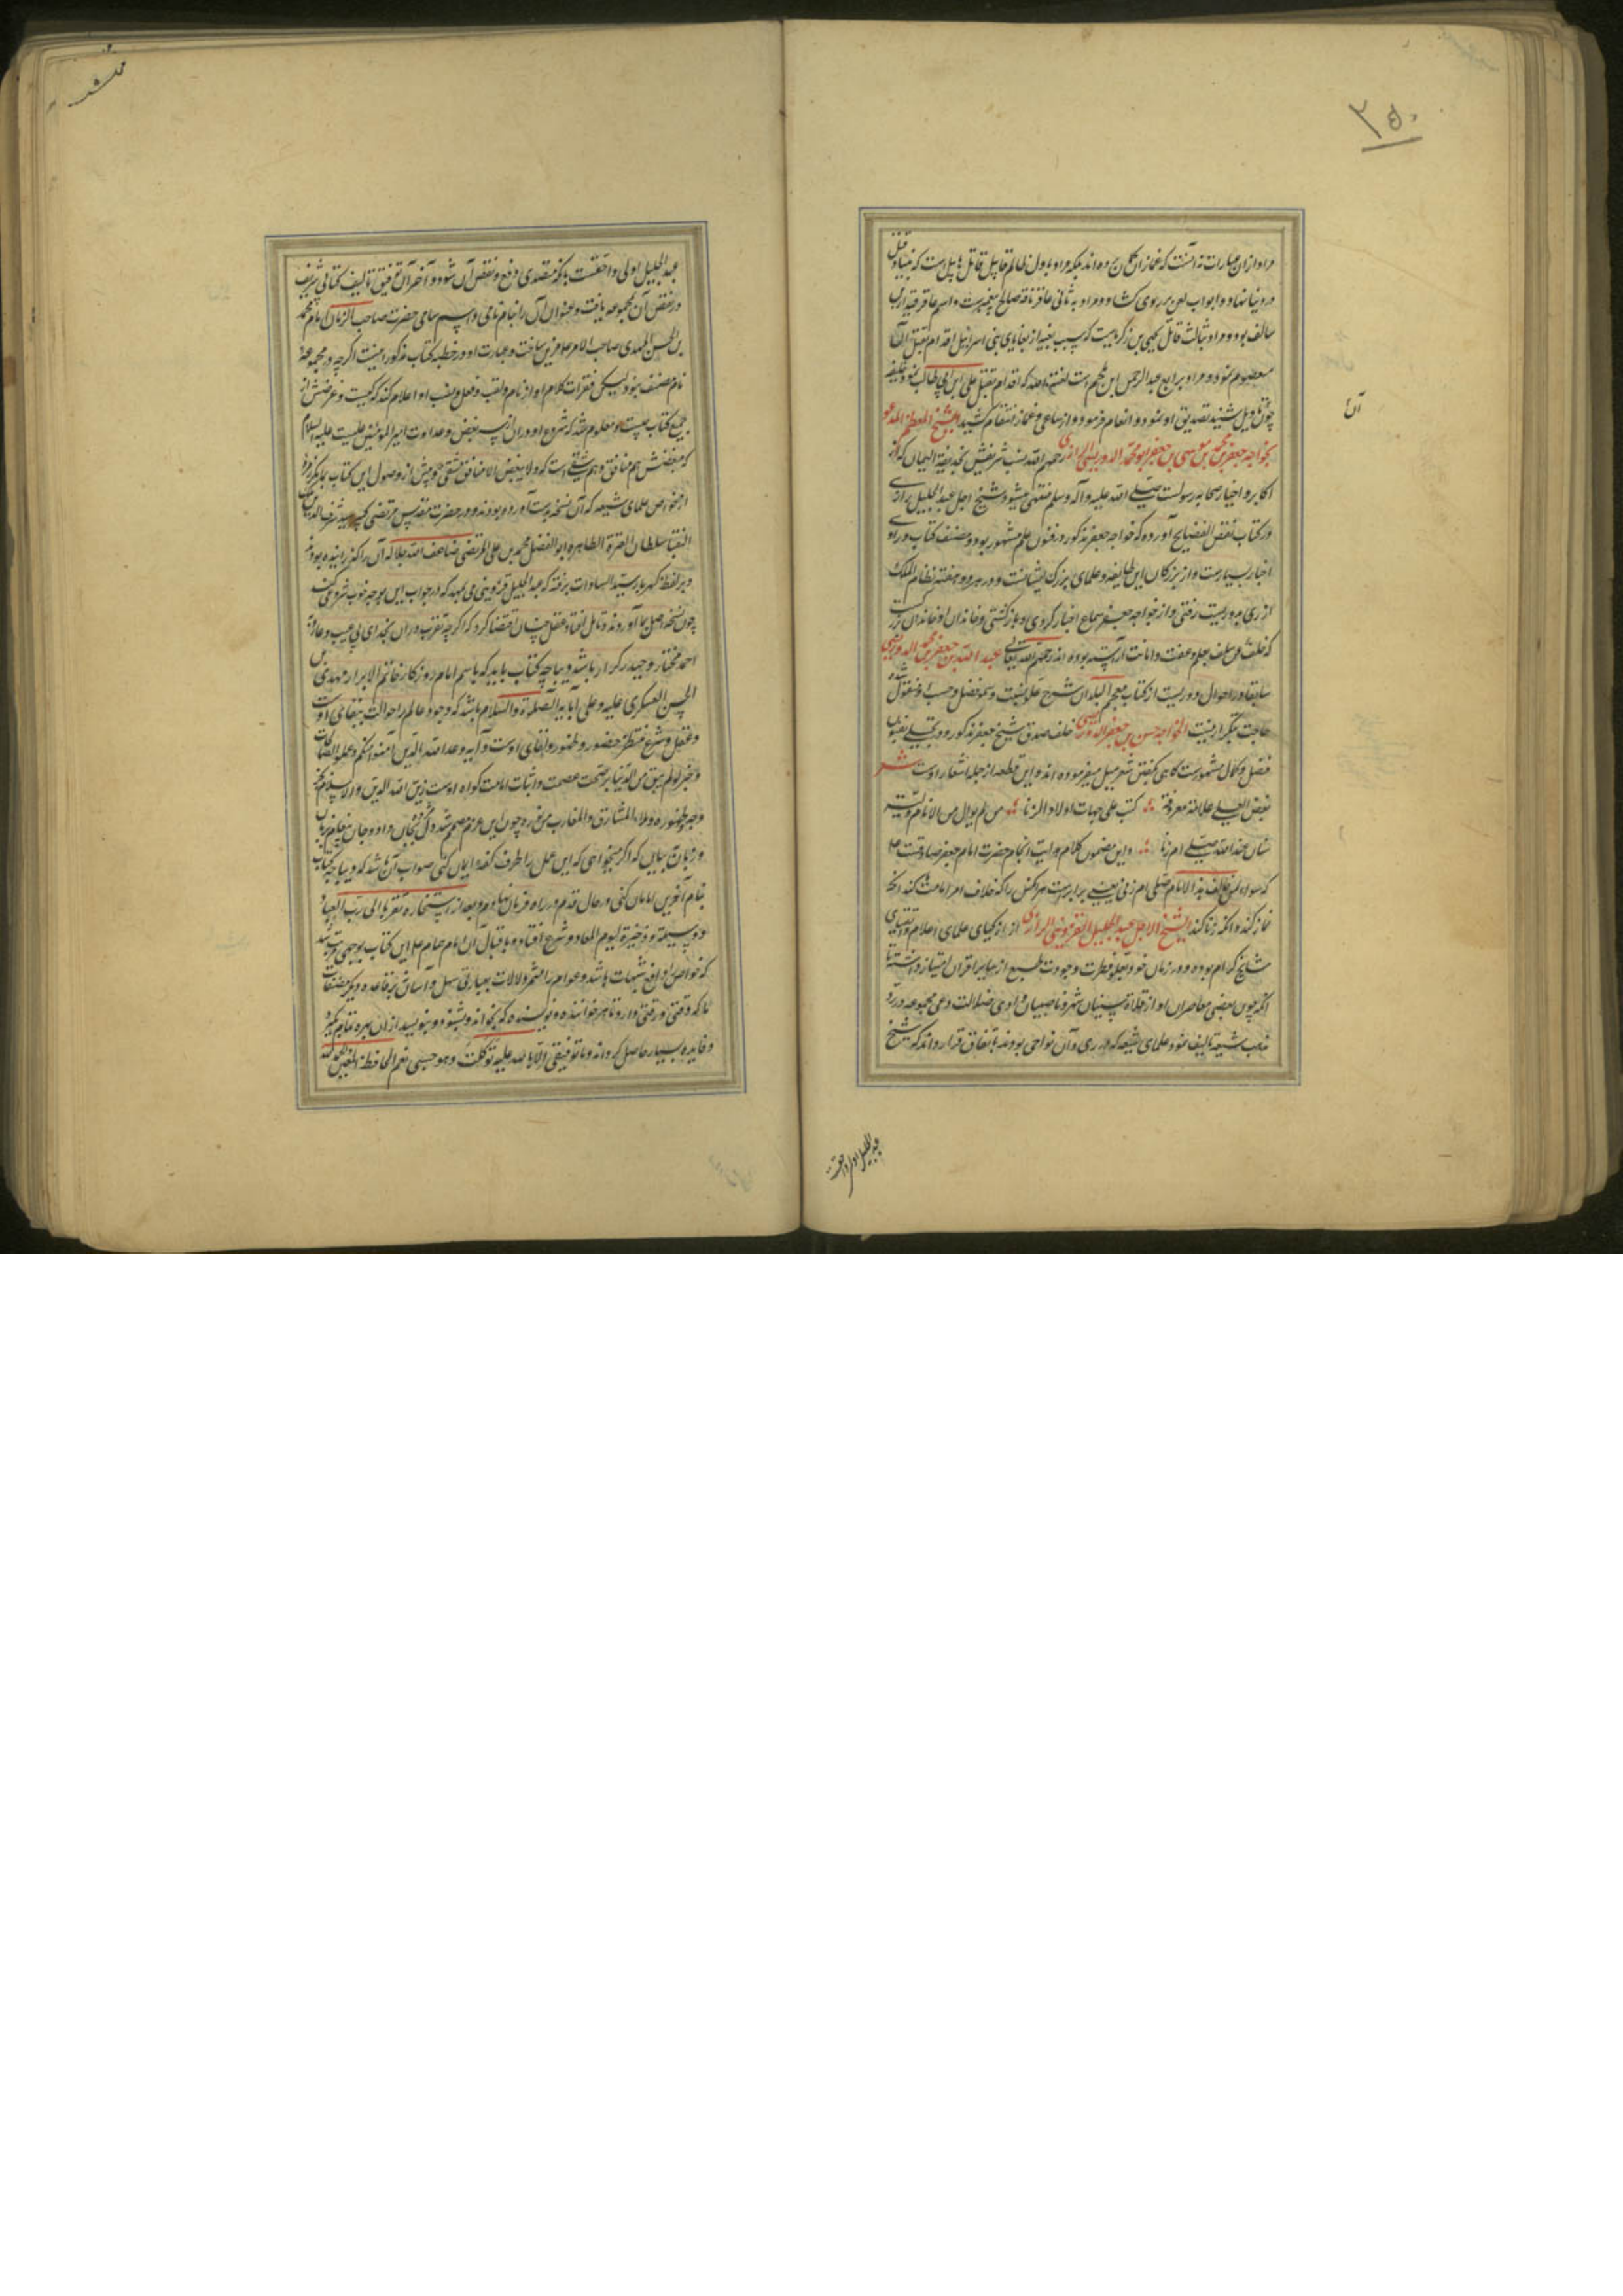 ۳۵۰
مراد از آن عبارات نه آنست که غمازان گمان برده‌اند بلکه مراد باول ظالم قابیل قاتل هابیل است که بنیاد قتل
در دنیا نهاد و ابواب لعن بر روی کشاد و مراد به ثانی عاقر ناقه صالح پیغمبرست و اسم عاقر قیدار بن
سالف بود و مراد بثالث قاتل یحیی بن زکریاست که بسبب بغیه از بغایای بنی اسرائیل اقدام بقتل آن
معصوم نمود و مراد برابع عبد الرحمن ابن ملجم است لعنة الله که اقدام بقتل علی ابن ابی طالب نمود خلیفه
چون تاویل شنید تصدیق او نمود و انعام فرمود و از ساعی و غماز انتقام کشید الشیخ المعظم المدعو
بخواجه جعفر بن محمد بن موسی بن جعفر ابو محمد الدوریستی الرازی رحمهم الله نسب شریفش بحذیفة الیمان که از
اکابر و اخیار صحابه رسولست صلی الله علیه و آله وسلم منتهی میشود و شیخ اجل عبد الجلیل رازی
در کتاب نقض الفضایح آورده که خواجه جعفر مذکور در فنون علم مشهور بود و مصنف کتاب و راوی
اخبار بسیارست و از بزرکان این طایفه و علمای بزرک ایشانست و در هر دو هفته نظام الملک
از ری بدوریست رفتی و از خواجه جعفر سماع اخبار کردی و باز کشتی و خاندان او خاندان بزرگست
که خلف عن سلف بعلم و عفت و امانت آراسته بوده اند رحمهم الله تعالی عبد الله بن جعفر بن محمد الدوریستی
سابقا در احوال دوریست از کتاب معجم البلدان شرح علو نسبت و سمو فضل و حسب او منقول شده
حاجت بتکرار نیست الخواجه حسن بن جعفر الدوریستی خلف صدق شیخ جعفر مذکور و وی بفنون
فضل و کمال مشهورست کاهی بکفتن شعر میل میفرموده اند و این قطعه از جمله اشعار اوست شعر
بغض العلی علامة معروفة ؞ کتب علی جبهات اولاد الزنا ؞ من لم یوال من الانام ولیه
سیان عند الله صلی ام زنا ؞ و این مضمون کلام ولایت انجام حضرت امام جعفر صادقست ع
که سواء لمن خالف هذا الامام صلی ام زنی یعنی برابرست هر کس را که خلاف امر امامت کند آنکه
نماز کند و آنکه زنا کند الشیخ الاجل عبد الجلیل القزوینی الرازی از ازکیای علمای اعلام و اتقیای
مشایخ کرام بوده و در زمان خود بعلو فطرت و جودت طبع از سایر اقران امتیاز داشته تا
آنکه چون بعضی معاصران او از غلاة سنیان شهر و ناصبیان وادی ضلالت و غی مجموعه در رد
مذهب شیعه تالیف نمود علمای شیعه که در ری و آن نواحی بودند باتفاق قرار دادند که شیخ
عبد الجلیل اولی و احقست
عبد الجلیل اولی و احقست بانکه متصدی دفع و نقض آن شود و آخر آن توفیق تالیف کتابی شریف
در نقض آن مجموعه یافت و عنوان آن را بنام نامی و اسم سامی حضرت صاحب الزمان امام محمد
بن الحسن المهدی صاحب الامر ع مزین ساخت و عبارت او در خطبه کتاب مذکور اینست اکرچه در مجموعه
نام مصنف نبود لیکن فقرات کلام او از نام و لقب و فعل و نصب او اعلام کند که کیست و غرضش از
جمع کتاب چیست و معلوم شد که شروع او در آن از سر بغض و عداوت امیر المؤمنین علیست علیه السلام
که مبغضش هم منافق و هم شقی است که و لا یبغض الا منافق شقی و پیش از وصول این کتاب بما مکر
از خواص علمای شیعه که آن نسخه بدست آورده بودند و در حضرت مقدس مرتضی کبیر سید شرف الدین
النقبا سلطان العترة الطاهره ابو الفضل محمد بن علی المرتضی ضاعف الله جلاله آن را کذرانیده بودند
و بر لفظ کهربار سید السادات برفته که عبد الجلیل قزوینی می باید که در جواب این بر وجه خوب شروعی کند
چون نسخه اصل بما آوردند و تامل افتاد عقل چنان اقتضا کرد که اکرچه تقرب در آن بخدای بی عیب و عار و
احمد مختار و حیدر کرار باشد دیباچه کتاب باید که باسم امام روزکار خاتم الابرار مهدی بن
الحسن العسکری علیه و علی آبایه الصلوة والسلام باشد که وجود عالم را حوالت ببقای اوست
و عقل و شرع منتظر حضور و ظهور و لقای اوست و آیه وعد الله الذین آمنوا منکم وعملوا الصالحات
و خبر لو لم یبق من الدنیا بر صحت عصمت و اثبات امامت کواه اوست زین الله الدین والاسلام
وجه ظهوره وملاء المشارق والمغارب من نوره چون این عزم مصمم شد
و زبان بیان که اکر میخواهی که این عمل را طرف کفه ایمان کنی صواب آن باشد که دیباچه کتاب
بنام آخرین امامان کنی در حال قدم در راه فرمان نهادم و بعد از استخاره تقربا الی رب العباد
و وسیلة و ذخیرة لیوم المعاد و شرح افتاد و باقبال آن امام همام ع این کتاب بوجهی مرتب شد
که خواص را دافع شبهات باشد و عوام را مثمر دلالات بعبارتی سهل و آسان نه بر قاعده دیکر مصنفات
ما که دقتی و رقتی دارد تا هر خواننده و نویسنده که بخواند و بشنود و بنویسد از آن بهره تمام بکیرد
و فایده بسیار حاصل کرداند و ما توفیقی الا بالله علیه توکلت وهو حسبی نعم الحافظ والمعین والحمد لله